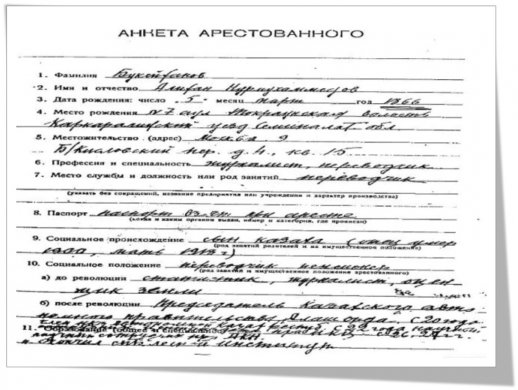 АНКЕТА АРЕСТОВАННОГО
1. Фамилия Букейханов
2. Имя и отчество Алихан Нурмухаммедов
3. Дата рождения: число „5“ месяц март год 1866
4. Место рождения №7 аул Токраунской волости
Каркаралинский уезд Семипалат. обл
5. Местожительство (адрес) Москва 9
Б/Кисловский пер. д. 4, кв. 15
6. Профессия и специальность журналист, переводчик
7. Место службы и должность или род занятий переводчик
(указать без сокращений, название предприятия или учреждения и характер производства)
8. Паспорт паспорт при аресте
(когда и каким органом выдан, номер и категория, где прописан)
9. Социальное происхождение сын казака (отец умер
(род занятий родителей и их имущественное положение)
мать 1918 г.)
10. Социальное положение переводчик пенсионер
(род занятий и имущественное положение арестованного)
а) до революции статистик, журналист, оцен
щик земли
б) после революции Председатель Казакского авто
номного правительства Алашорда, с 20 года
11. Образование (общее и специальное)